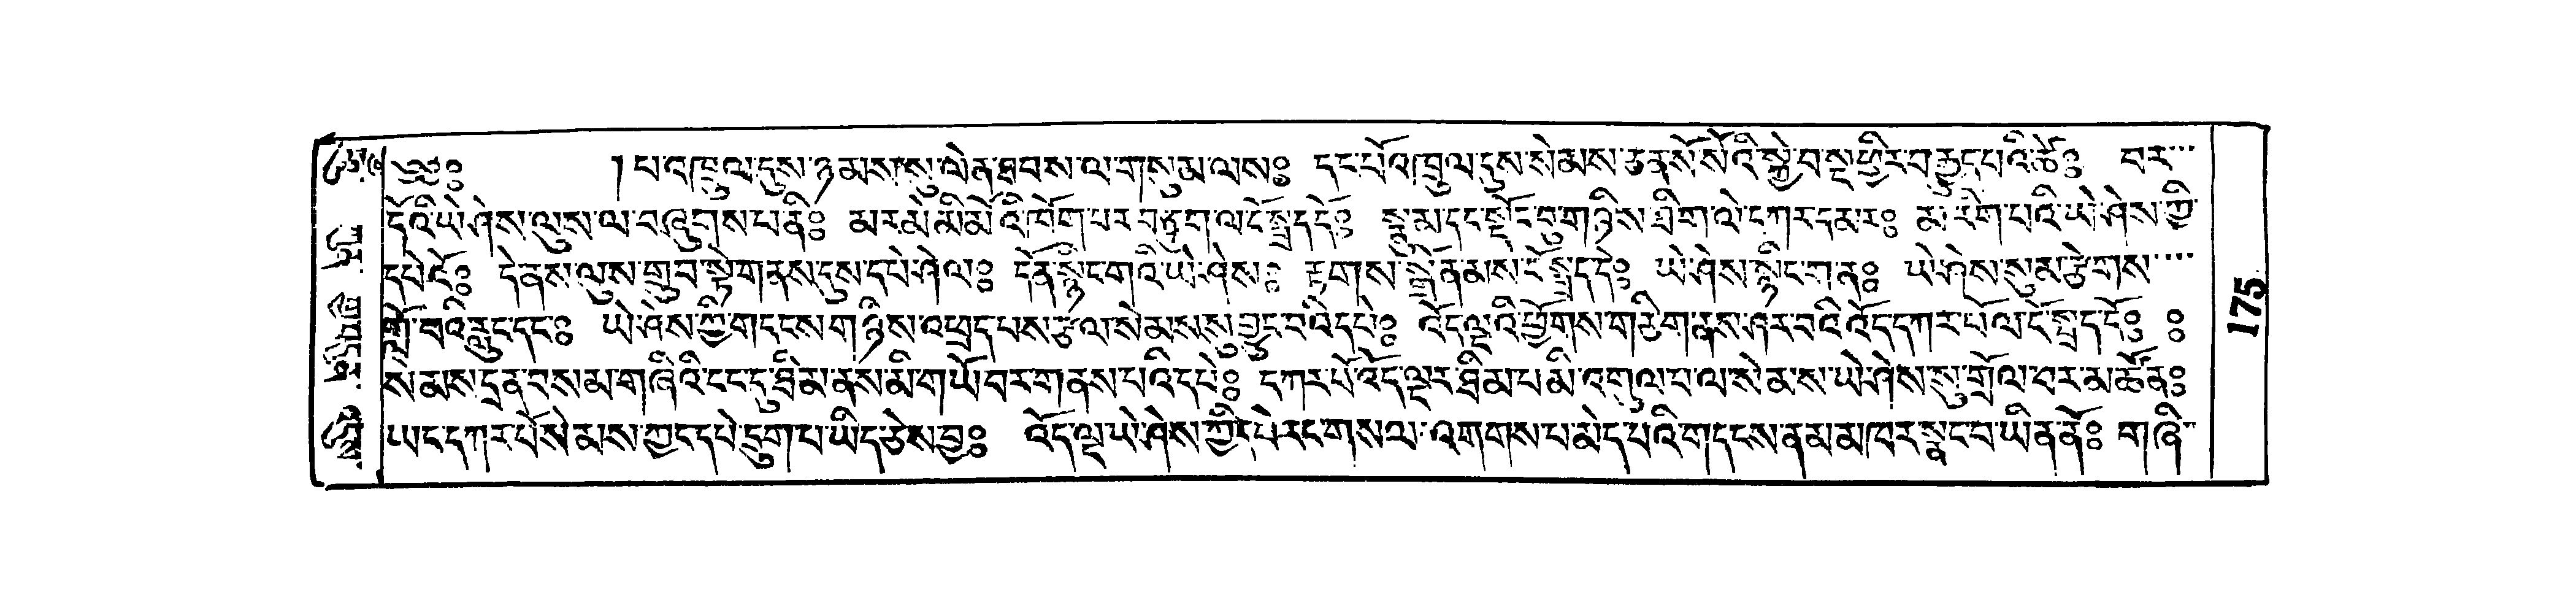 ༄༅། །༔ །པ་འཁྲུལ་དུས་ཉམས་སུ་ལེན་ཐབས་ལ་གསུམ་ལས༔ དང་པོ་འཁྲུལ་དུས་སེམས་ཅན་སོ་སོའི་སྐྱེ་བ་སྔ་ཕྱིར་བརྒྱུད་པའི་ཚེ༔ བར
དོའི་ཡེ་ཤེས་ལུས་ལ་བཞུགས་པ་ནི༔ མར་མེ་མི་མོའི་ཁོག་པར་བཏུག་ལ་ངོ་སྤྲད་དེ༔ སྣུམ་དང་སྡོང་བུ་གཉིས་ཐིག་ལེ་དཀར་དམར༔ མ་རིག་པའི་ཡེ་ཤེས་ཀྱི
དཔེའོ༔ དེ་ནས་ལུས་གྲུབ་སྟེ་གནས་དུས་དཔེ་ཤེལ༔ དོན་སྙིང་གའི་ཡེ་ཤེས༔ རྟགས་སྒྲོན་མས་ངོ་སྤྲད་དེ༔ ཡེ་ཤེས་སྙིང་ག་ན༔ ཡེ་ཤེས་སུམ་རྩེགས
གློ་བའི་རླུང་དང༔ ཡེ་ཤེས་ཀྱི་གདངས་གཉིས་འཕྲད་པས་རྩལ་སེམས་སུ་བྱུང་བའི་དཔེ༔ འོད་ལྔའི་ཕྱོགས་གཅིག་ནས་ཤར་བའི་འོད་དཀར་པོ་ལ་ངོ་སྤྲད་དོ༔ ༔
སེམས་དྲན་བས་མ་གཞིའི་ངང་དུ་ཐིམ་ནས་མི་གཡོ་བར་གནས་པའི་དཔེ༔ དཀར་པོ་འོད་ལྔར་ཐིམ་པ་མི་འགུལ་བ་ལ་སེམས་ཡེ་ཤེས་སུ་གྲོལ་བར་མཚོན༔
ཡང་དཀར་པོ་སེམས་ཀྱང་དཔེ་དྲུག་པ་ཡིད་ཆེས་བྱ༔ འོད་ལྔ་ཡེ་ཤེས་ཀྱི་དཔེ་རང་གསལ་འགགས་པ་མེད་པའི་གདངས་ནམ་མཁར་སྣང་བ་ཡིན་ནོ༔ གཞི
175